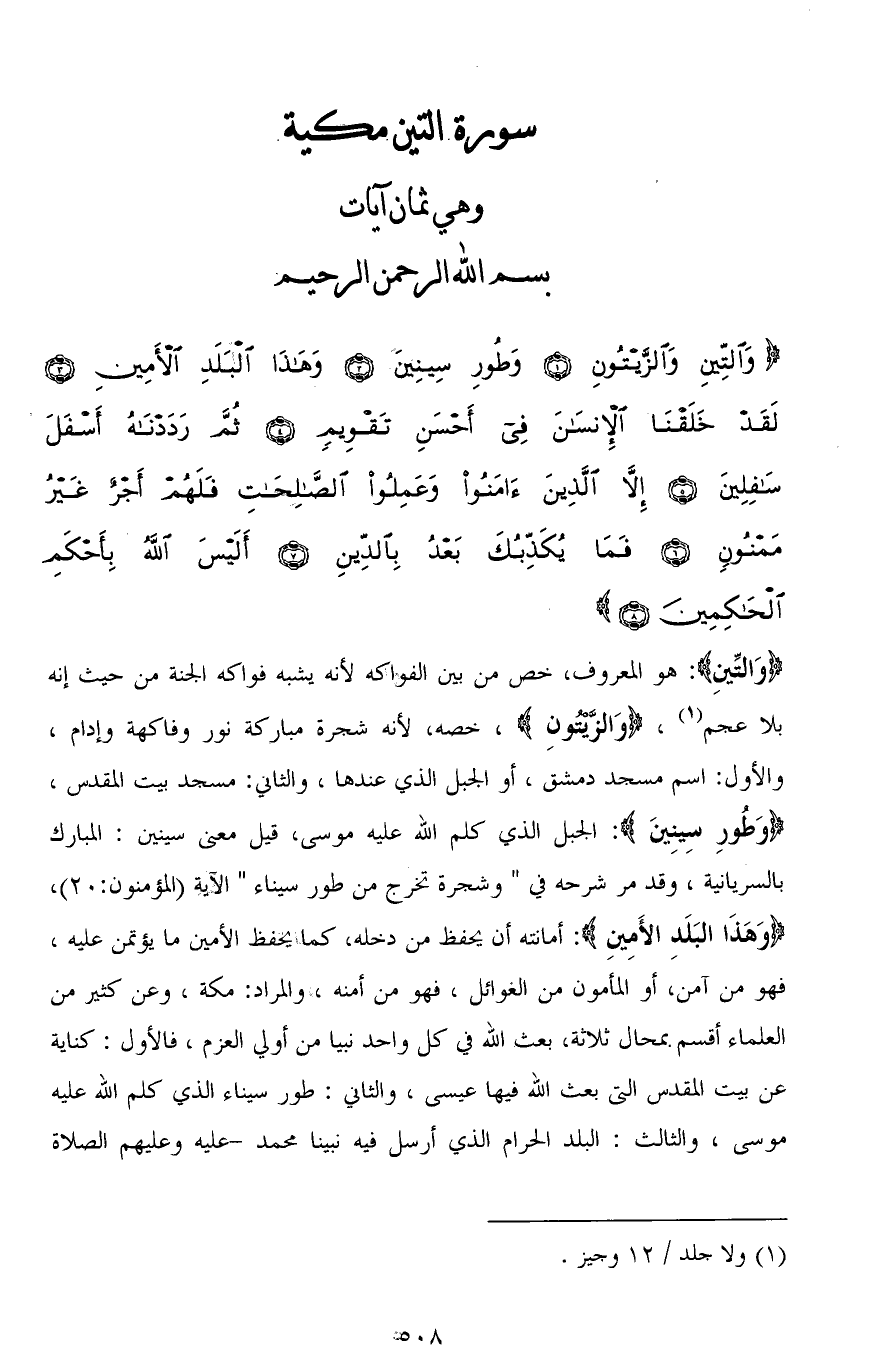 سورة التين مكية
وهي ثمان آيات
بسم الله الرحمن الرحيم
﴿ وَٱلتِّينِ وَٱلزَّيْتُونِ ١ وَطُورِ سِينِينَ ٢ وَهَٰذَا ٱلْبَلَدِ ٱلْأَمِينِ ٣
لَقَدْ خَلَقْنَا ٱلْإِنسَٰنَ فِىٓ أَحْسَنِ تَقْوِيمٍ ٤ ثُمَّ رَدَدْنَٰهُ أَسْفَلَ
سَٰفِلِينَ ٥ إِلَّا ٱلَّذِينَ ءَامَنُوا۟ وَعَمِلُوا۟ ٱلصَّٰلِحَٰتِ فَلَهُمْ أَجْرٌ غَيْرُ
مَمْنُونٍ ٦ فَمَا يُكَذِّبُكَ بَعْدُ بِٱلدِّينِ ٧ أَلَيْسَ ٱللَّهُ بِأَحْكَمِ
ٱلْحَٰكِمِينَ ٨ ﴾
﴿وَالتِّينِ﴾: هو المعروف، خص من بين الفواكه لأنه يشبه فواكه الجنة من حيث إنه
بلا عجم(١) ، ﴿وَالزَّيْتُونِ ﴾ ، خصه، لأنه شجرة مباركة نور وفاكهة وإدام ،
والأول: اسم مسجد دمشق ، أو الجبل الذي عندها ، والثاني: مسجد بيت المقدس ،
﴿وَطُورِ سِينِينَ ﴾: الجبل الذي كلم الله عليه موسى، قيل معنى سينين : المبارك
بالسريانية ، وقد مر شرحه في " وشجرة تخرج من طور سيناء " الآية (المؤمنون:٢٠)،
﴿وَهَذَا البَلَدِ الأَمِينِ ﴾: أمانته أن يحفظ من دخله، كما يحفظ الأمين ما يؤتمن عليه ،
فهو من آمن، أو المأمون من الغوائل ، فهو من أمنه ، والمراد: مكة ، وعن كثير من
العلماء أقسم بمحال ثلاثة، بعث الله في كل واحد نبيا من أولي العزم ، فالأول : كناية
عن بيت المقدس التي بعث الله فيها عيسى ، والثاني : طور سيناء الذي كلم الله عليه
موسى ، والثالث : البلد الحرام الذي أرسل فيه نبينا محمد –عليه وعليهم الصلاة
(١) ولا جلد / ١٢ وجيز .
٥٠٨